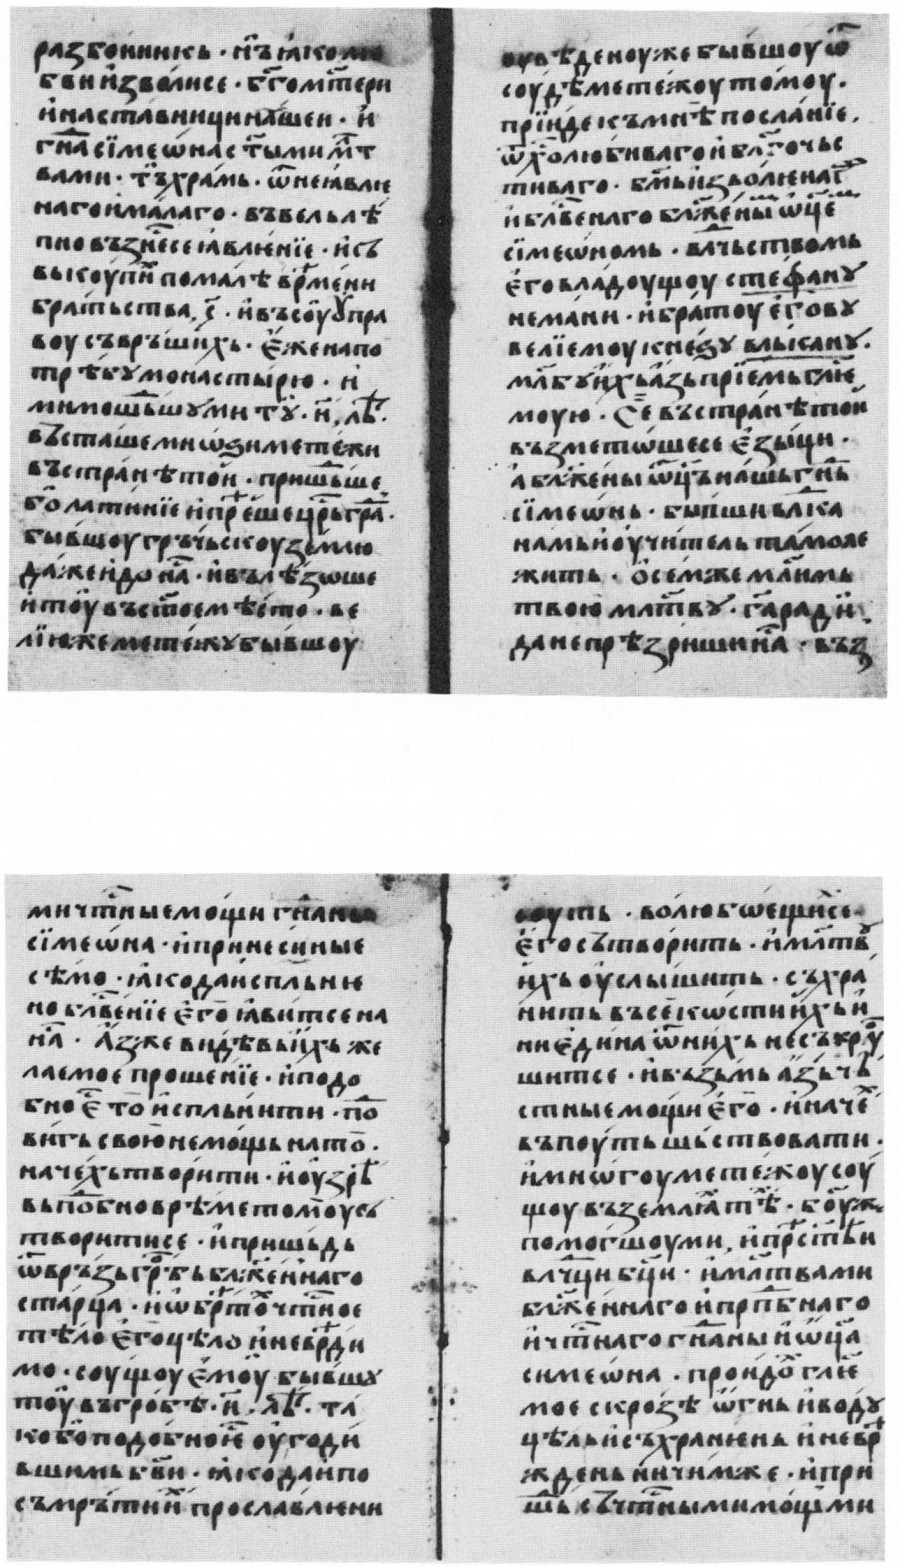 разбоиникь · нъ ꙗкоже
б҃ви и҆зволисе · б҃гом҃тери
и҆наставници нашеи · и҆
гн҃а сїмеѡна с т҃ыми мл҃т
вами · тъ храмь · ѿ неꙗвлѥ
наго и҆ малаго · въ вельлѣ
пно възнесе ꙗвлѥнїе · и҆сь
выкоупи помалѣ врѣмени
братьства, ҁ҃ · и҆ въ соу҆ꙋ пра
воу съврьшихь · Е҆же на по
трѣбꙋ монастырю · и҆
мимошьшꙋ ми тꙋ · и҃, лѣ ·
въсташе мнѡꙃи метежи
въ странѣ тои · пришьше
бо латинїе и҆ прѣеше цр҃ьгра ·
бывшоу грьчьскоу землю
даже и до на · и҆ вьлѣзѡше
и҆ тоу въ стоем мѣсто · ве
лїю же метежꙋ бывшоу
оувѣдено уже бывшоу ѿ
соудѣ метежоу томоу ·
прїиде къ мнѣ посланїе,
ѿ хо҃любиваго и҆ бл҃гочьс
тиваго · б҃мь и҆зьволѥнаг
и҆ бл҃веннаго бл҃женыи ѿц҃е
сїмеѡномь · вл҃чьствомь
Е҆го владоущоу стефанꙋ
немани · и҆ братоу е҆говꙋ
велїемоу кнеꙃꙋ вльканꙋ ·
мл҃бꙋ и҆хь азь прїемь гл҃ѥ
моую · Се въ странѣ тои
възметѡше се Е҆зыци ·
а бл҃жены ѿц҃ь нашь гн҃ь
сїмеѡнь · бывши вл҃ка
намь и҆ оучитель тамо ле
жить · ѻ҆ семже мл҃имь
твою мл҃твꙋ · г҃а ради
да не прѣзриши на · въз
ми чт҃ные мощи гн҃а ны
сїмеѡна · и҆ принеси ные
сѣмо · ꙗко да испльнѥ
но бл҃венїе Е҆го ꙗвит се на
на · Азже видѣвь и҆хь же
лаемое прошенїе · и҆ подо
бно Е҆ то и҆спльнити · по
вигь свою немощь на то ·
начехь творити · и҆ оузрѣ
вь побно врѣме томоу сь
творити се · и҆ пришьдь
ѿврьзь гр҃бь бл҃женнаго
старца · и҆ ѡбрѣто чт҃ное
тѣло Е҆го цѣло и҆ неврѣди
мо · соущоу Е҆моу бывшꙋ
тоу въ гробѣ · и҃ · лѣ · та
ко бо подобно Е҆ оугоди
вьшимь б҃ви · ꙗко да и по
съмрьтии прославлѥни
соуть · волю бѡещихсе
Е҆го сьтворить · и҆ мл҃твꙋ
и҆хь оуслышить · съхра
нить въсе кѡсти и҆хь и
ни Е҆дина ѿ нихь не съкрꙋ
шит се · и҆ възьмь азь чь
стные мощи Е҆го · и҆ наче
въ поуть шьствовати ·
и҆ мнѡгоу метежоу соу
щоу въ земли тѣ · б҃оу ж
помогшоу ми, и҆ прѣстѣи
вл҃чци б҃ци · и҆ мл҃твами
бл҃женнаго и҆ прп҃бнаго
и҆ чт҃наго гн҃а ны и҆ ѿц҃а
симеѡна · проидо гл҃ѥ
мое скрозѣ ѡгнь и҆ водꙋ
цѣль и҆ съхранѥнь и҆ неврѣ
ждень ничимже · и҆ при
шь сь чт҃ными мощми